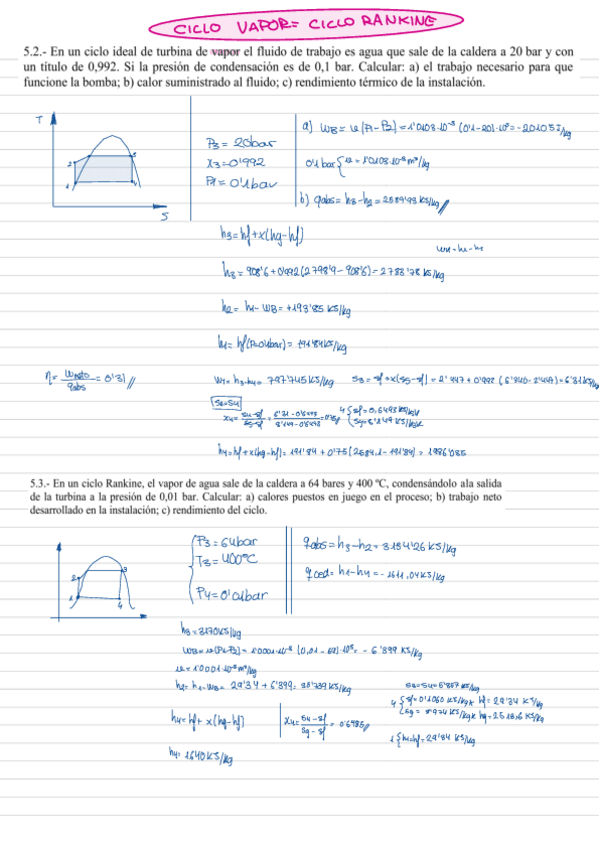 CICLO VAPOR = CICLO RANKINE
5.2.- En un ciclo ideal de turbina de vapor el fluido de trabajo es agua que sale de la caldera a 20 bar y con
un titulo de 0,992. Si la presión de condensación es de 0,1 bar. Calcular: a) el trabajo necesario para que
funcione la bomba; b) calor suministrado al fluido; c) rendimiento térmico de la instalación.
T
S
P3 = 20bar
x3 = 0'992
P1 = 0'1bar
a) WB = v(P1-P2) = 1'0103·10⁻³ (0'1-20)·10⁵ = -20105J/kg
0'1bar { v = 1'0103·10⁻³ m³/kg
b) qabs = h3-h2 = 2589'93 KJ/kg //
h3 = hf + x(hg-hf)
h3 = 908'6 + 0'992(2798'9 - 908'6) = 2783'78 KJ/kg
h2 = h1 - WB = +193'85 KJ/kg
h1 = hf(P=0'1bar) = +191'84KJ/kg
η = Wneto/qabs = 0'31 //
WT = h3-h4 = 797'745 KJ/kg
S3 = sf + x(sg-sf) = 2'447 + 0'992 (6'340 - 2'447) = 6'31KJ/kg
S3=S4
x4 = (S4-Sf)/(Sg-Sf) = (6'31-0'6493)/(8'149-0'6493) = 0'75 //
4 { sf = 0,6493 KJ/kgK
{ sg = 8'149 KJ/kgK
h4 = hf + x(hg-hf) = 191'84 + 0'75 (2584.1 - 191'84) = 1986'035
5.3.- En un ciclo Rankine, el vapor de agua sale de la caldera a 64 bares y 400 ºC, condensándolo ala salida
de la turbina a la presión de 0,01 bar. Calcular: a) calores puestos en juego en el proceso; b) trabajo neto
desarrollado en la instalación; c) rendimiento del ciclo.
P3 = 64bar
T3 = 400ºC
P4 = 0'01bar
qabs = h3-h2 = 3134'26 KJ/kg
qced = h1-h4 = -1611,04KJ/kg
h3 = 3170KJ/kg
WB = v(P1-P2) = 1'0001·10⁻³ (0,01 - 64)·10⁵ = -6'399 KJ/kg
v = 1'0001·10⁻³ m³/kg
h2 = h1 - WB = 29'34 + 6'399 = 35'739 KJ/kg
h4 = hf + x(hg-hf)
x4 = (S4-Sf)/(Sg-Sf) = 0'6485 //
4 { sf = 0'1060 KJ/kgK hf = 29'34 KJ/kg
1 { h1 = hf = 29'34 KJ/kg
h4 = 1640 KJ/kg